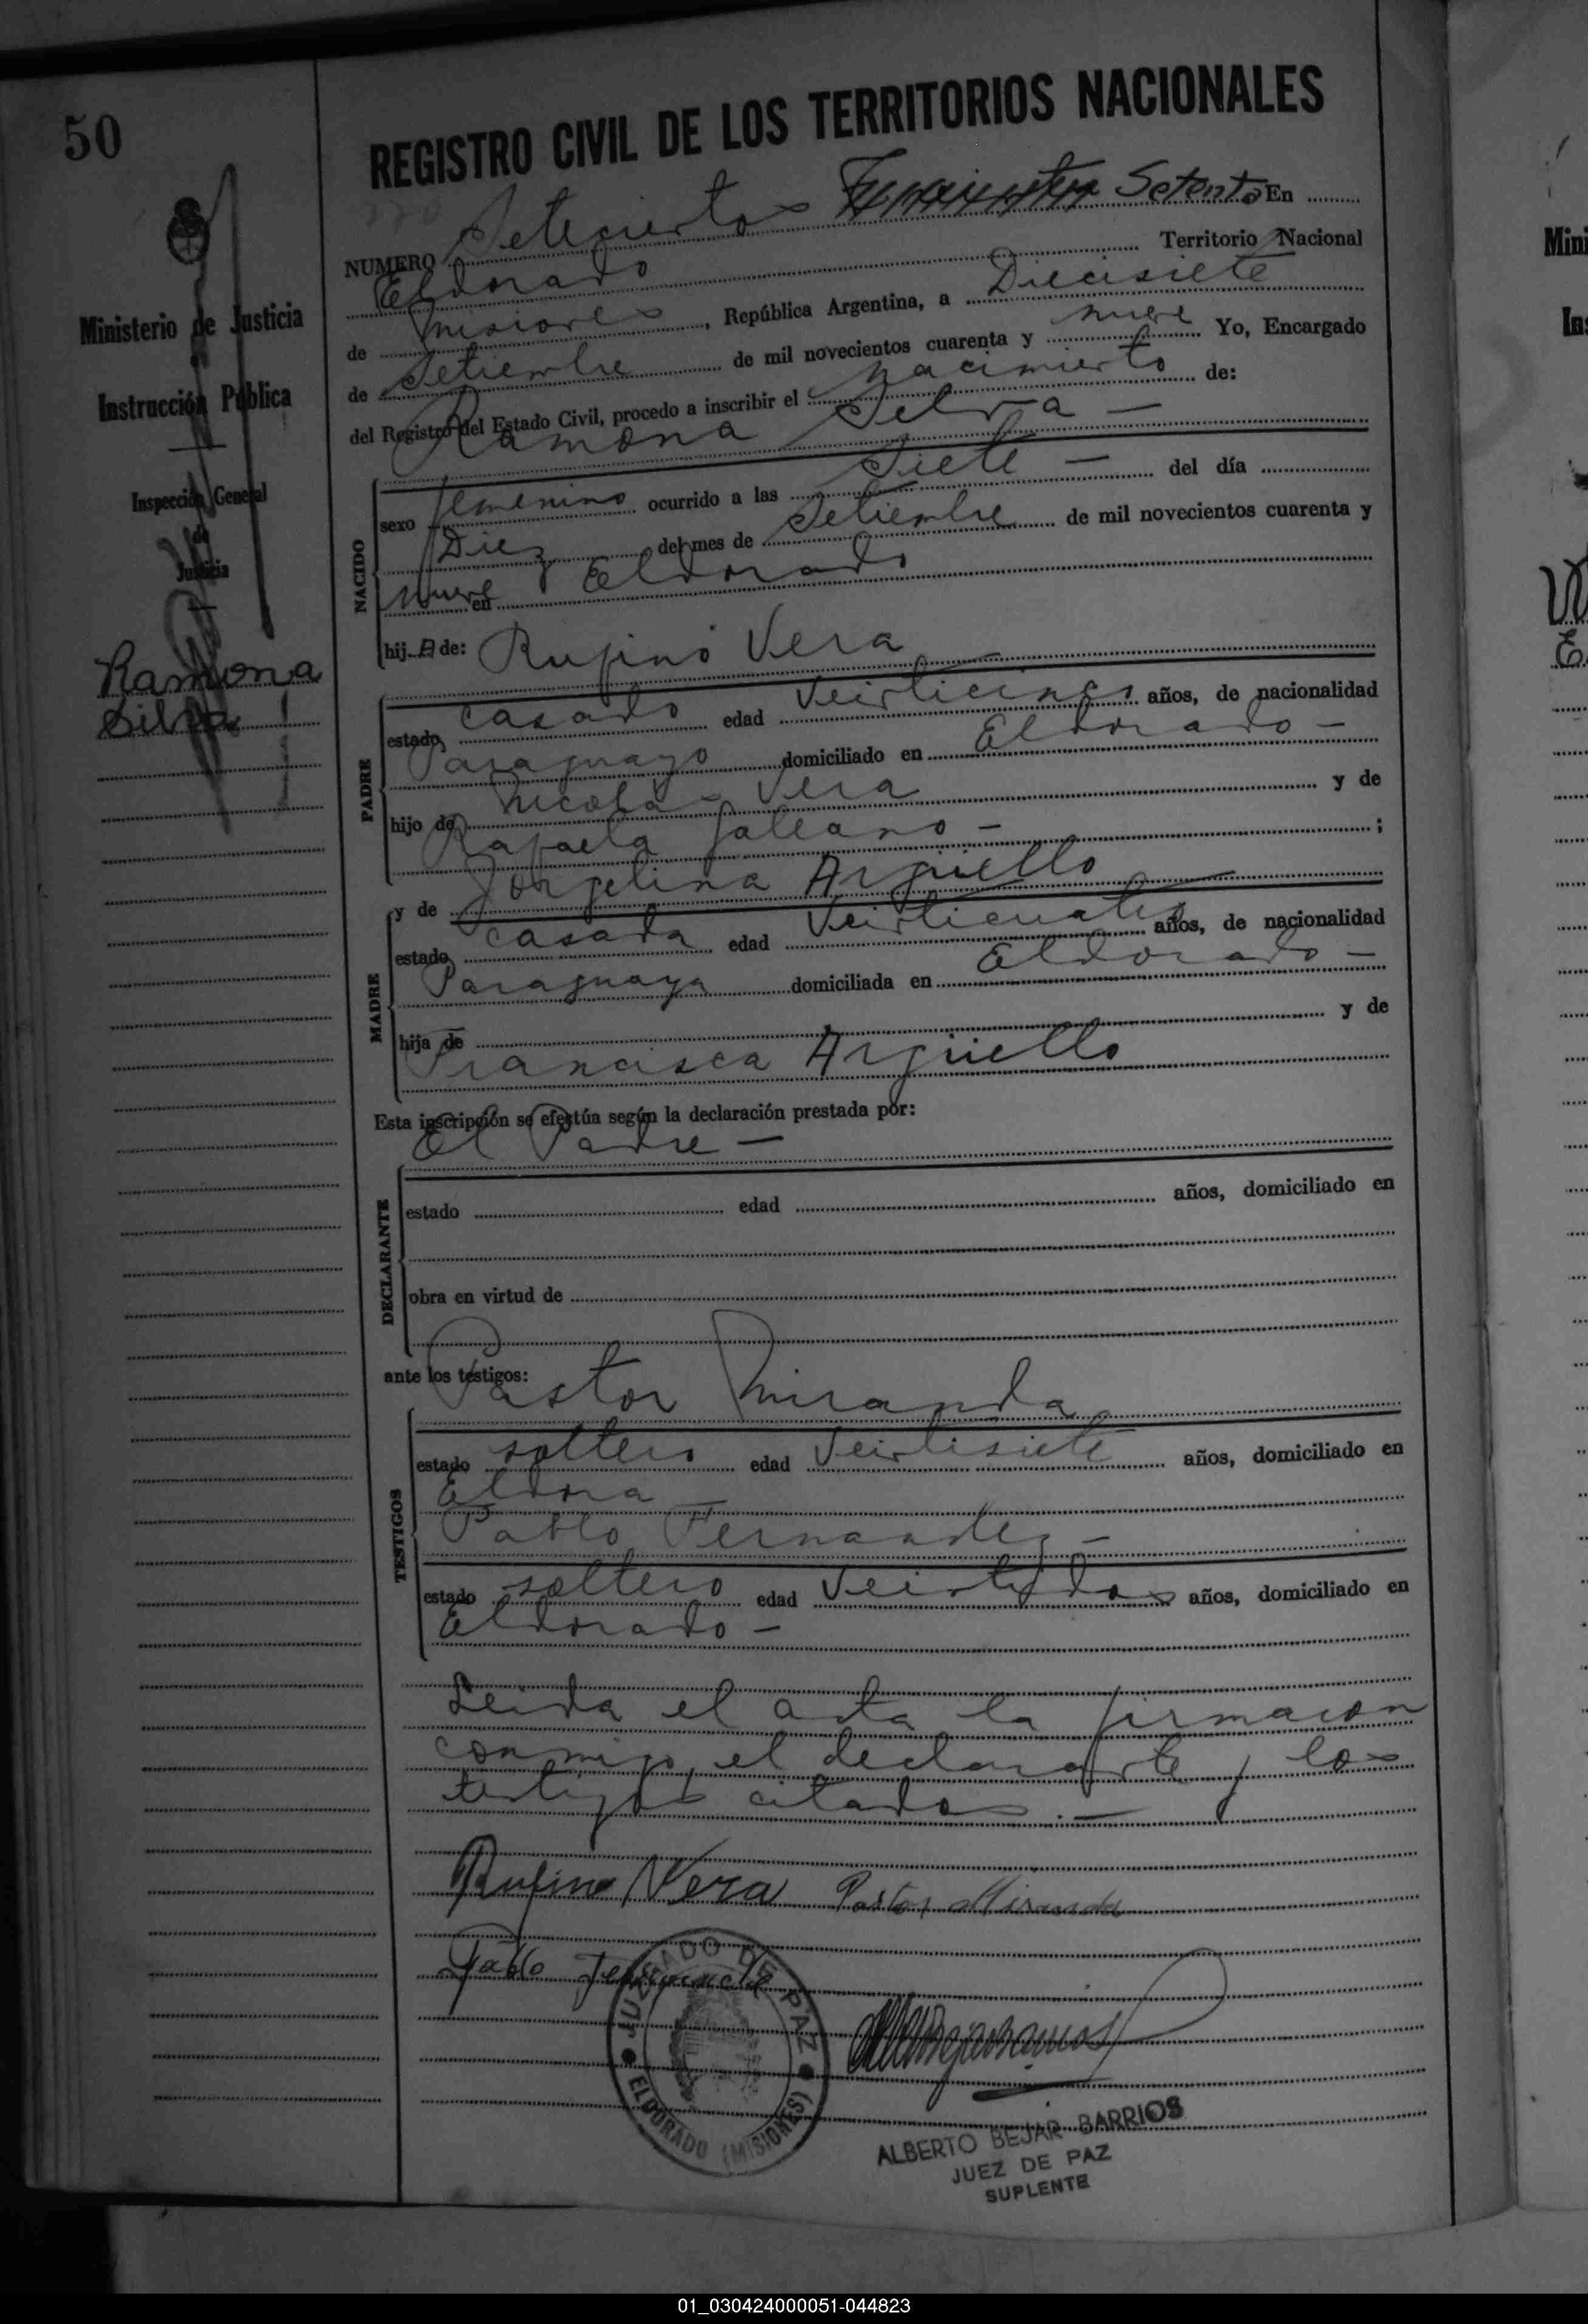 50
REGISTRO CIVIL DE LOS TERRITORIOS NACIONALES
770
NUMERO Setecientos Setenta En
Eldorado Territorio Nacional
de Misiones, República Argentina, a Diecisiete
de Setiembre de mil novecientos cuarenta y nueve Yo, Encargado
del Registro del Estado Civil, procedo a inscribir el nacimiento de:
Ramona Selva —
Ministerio de Justicia
Instrucción Pública
Inspección General
de
Justicia
Ramona
Silva
NACIDO
sexo femenino ocurrido a las Siete — del día
Diez del mes de Setiembre de mil novecientos cuarenta y
nueve en Eldorado
hij a de: Rufino Vera
PADRE
estado casado edad Veinticinco años, de nacionalidad
Paraguayo domiciliado en Eldorado —
hijo de Nicolas Vera y de
Rafaela Galeano — ;
MADRE
y de Jorgelina Argüello
estado casada edad Veinticuatro años, de nacionalidad
Paraguaya domiciliada en Eldorado —
hija de y de
Francisca Argüello
Esta inscripción se efectúa según la declaración prestada por:
El Padre —
DECLARANTE
estado edad años, domiciliado en
obra en virtud de
ante los testigos:
Pastor Miranda
TESTIGOS
estado soltero edad Veintisiete años, domiciliado en
Eldora —
Pablo Fernandez —
estado soltero edad Veintidos años, domiciliado en
Eldorado —
Leida el acta la firmaron
conmigo, el declarante y los
testigos citados. —
Rufino Vera Pastor Miranda
Pablo Fernandez
JUZGADO DE PAZ
ELDORADO (MISIONES)
ALBERTO BEJAR BARRIOS
JUEZ DE PAZ
SUPLENTE
01_030424000051-044823